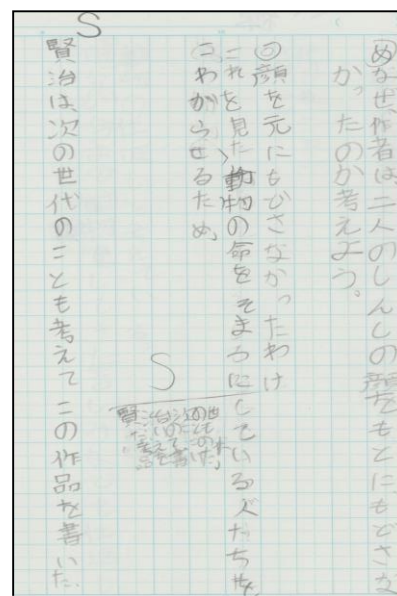 めなぜ、作者は二人のしんしの顔をもとにもどさな
かったのか考えよう。
◎顔を元にもどさなかったわけ
これを見た、動物の命をそまつにしている人たちを、
こわがらせるため。
S
S
賢治は、次の世代のことも考えてこの作品を書いた。